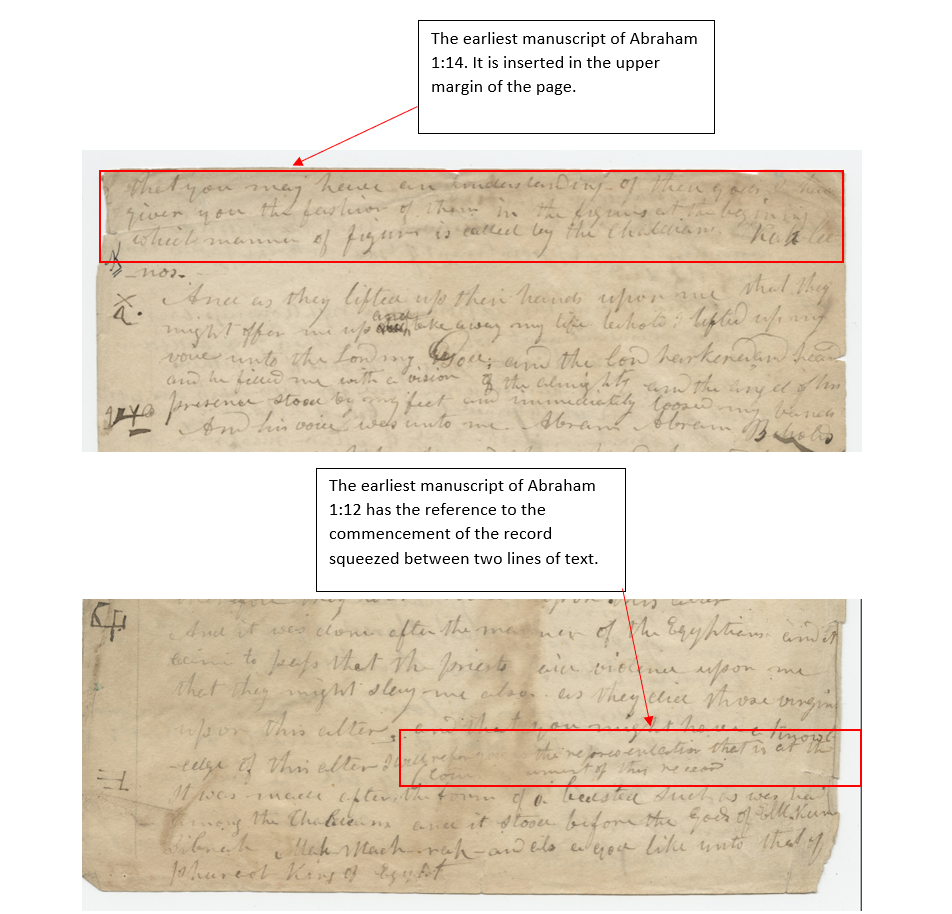 The earliest manuscript of Abraham
1:14. It is inserted in the upper
margin of the page.
that you may have an understanding of these gods I have
given you the fashion of them in the figures at the begining
which manner of figures is called by the Chaldians
nos.
And as they lifted up their hands upon me that they
might offer me up and take away my life behold I lifted up my
voice unto the Lord my God; and the Lord harkened and heard
and he filled me with a vision of the almighty and the angel of his
presence stood by my feet and immediately loosed my bands
And his voice was unto me. Abram Abram Behold
The earliest manuscript of Abraham
1:12 has the reference to the
commencement of the record
squeezed between two lines of text.
this alter
And it was done after the manner of the Egyptians and it
came to pass that the priests did violence upon me
that they might slay me also as they did those virgins
upon this alter, and that you might have a knowl-
-edge of this alter I will refer you to the representation that is at the
ment of this record
It was made after the form of a bedsted such as was had
among the Chaldeans and it stood before the Gods of Elk-Kener
Zibnah Mah-Mach-rah- and also a god like unto that of
pharaoh King of Egypt